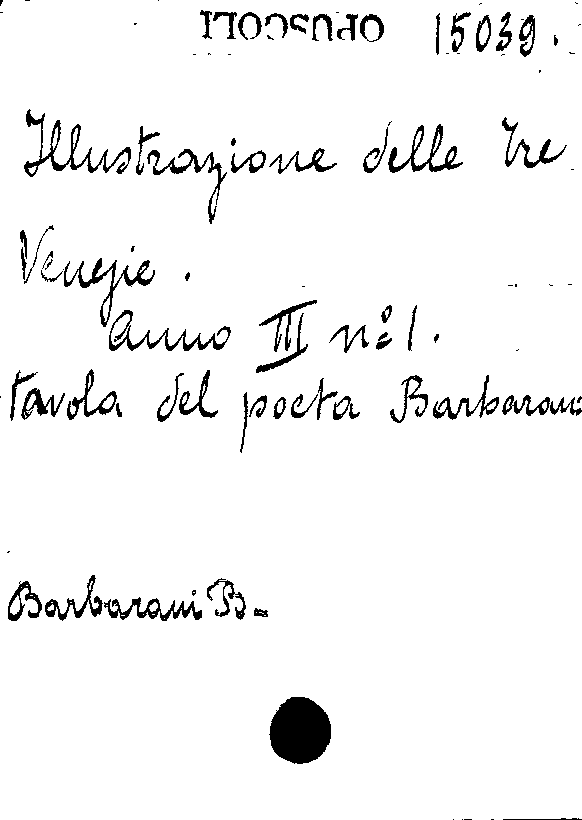 OPUSCOLI 15039.
Illustrazione delle Tre
Venezie.
Anno III nº 1.
tavola del poeta Barbarani
Barbarani B.